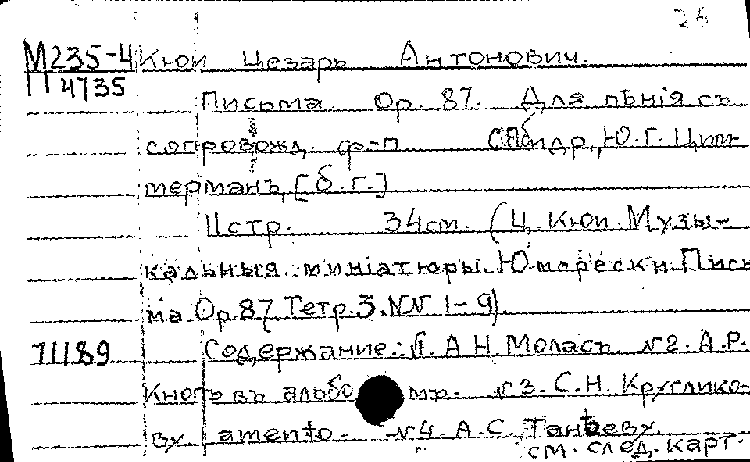 26
М235-4 Кюи Цезарь Антонович.
4735
Письма. Op. 87. Для пѣнія съ
сопровожд. ф-п. СПб и др., Ю.Г. Цим-
мерманъ, [б.г.]
11стр. 34см. (Ц. Кюи. Музы-
кальныя миніатюры. Юморески. Пись
ма Ор. 87. Тетр. 3. NN 1-9)
71189 Содержание: №1. А.Н. Моласъ №2. А.Р.
въ альбо мъ. №3. С.Н. Круглико-
ву. №4. А.С. Танѣеву.
см. след. карт.